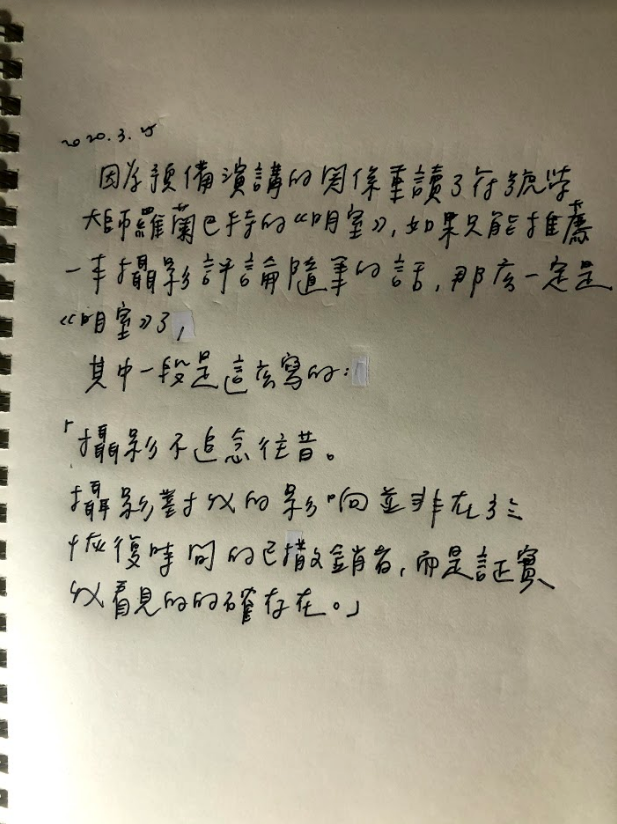 2020.3.25
因為預備演講的関係重讀了符號學
大師羅蘭巴特的《明室》,如果只能推薦
一本攝影評論隨筆的話,那広一定是
《明室》了,
其中一段是這広寫的:
「攝影不追念往昔。
攝影對我的影响並非在於
恢復時间的已撤銷者,而是証實
我看見的的確存在。」